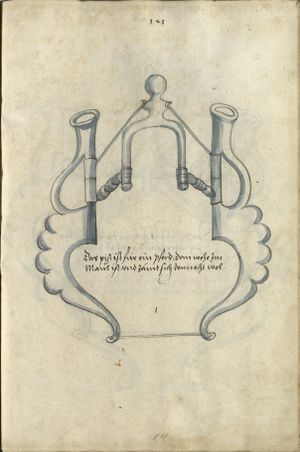 121
Das pis ist für ein pferd, dem wehe im
Maul ist und zäimt sich dennocht wol.
1